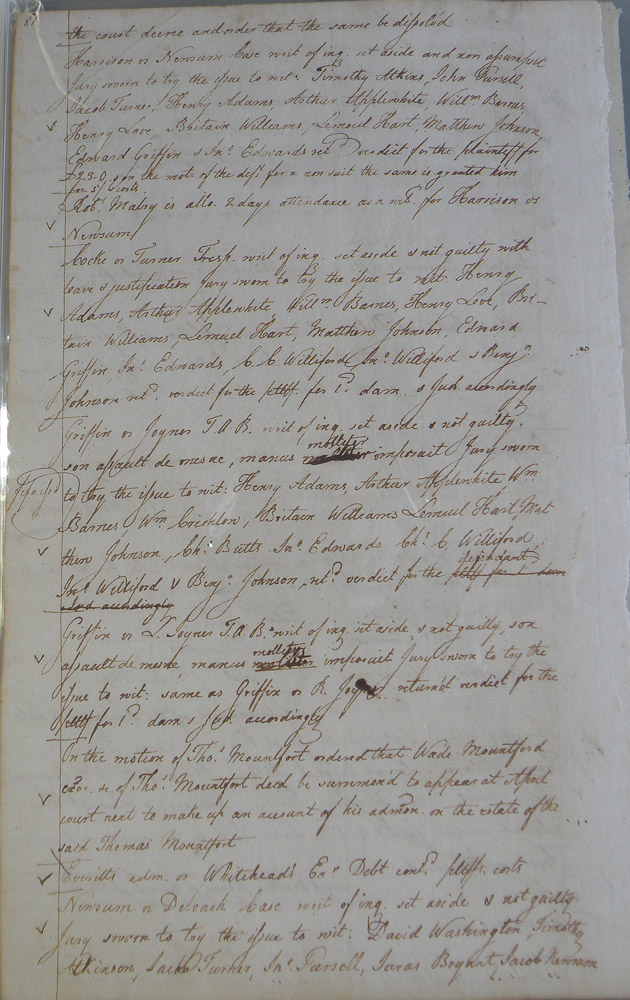 81
the court decree and order that the same be dissolv'd
Harrison vs Newsum Case writ of inq. set aside and non assumpsit
Jury sworn to try the issue to wit: Timothy Atkins, John Pursell,
Jacob Turner, Henry Adams, Arthur Applewhite, Willm Barnes,
Henry Love, Britain Williams, Lemuel Hart, Matthew Johnson
Edward Griffin & Jno. Edwards retd. verdict for the plaintiff for
£23.0. on the mote of the deft for a non suit the same is granted him
for 5/ & costs
Robt. Malry is allo. 2 days attendance as a wit. for Harrison vs
Newsum
Cocke vs Turner Tresp. writ of inq. set aside & not guilty with
leave & justification Jury sworn to try the issue to wit. Henry
Adams, Arthur Applewhite, Willm Barnes, Henry Love, Bri-
tain Williams, Lemuel Hart, Matthew Johnson, Edward
Griffin, Jno. Edwards, C. C. Williford, Jno. Williford & Benjn
Johnson retd. verdict for the pltff. for 1d. dam. & Jud. accordingly
Griffin vs Joyner T.A.B. writ of inq. set aside & not guilty,
son assault de mesne, manus molliter imposuit Jury sworn
to try the issue to wit: Henry Adams, Arthur Applewhite Wm
Barnes Wm Crichlow, Britain Williams Lemuel Hart Mat
thew Johnson, Chs. Butts Jno. Edwards Chs. C. Williford,
defendant
Jno. Williford & Benjn. Johnson, retd. verdict for the pltff for 1d dam
& Jud accordingly
Griffin vs L. Joyner T.A.B. writ of inq. set aside & not guilty, son
assault de mesne manus molliter imposuit Jury sworn to try the
issue to wit: same as Griffin vs R. Joyner return'd verdict for the
pltff for 1d. dam & Jud accordingly
On the motion of Thos. Mountfort ordered that Wade Mountford
exor. &c of Thos. Mountfort decd be summon'd to appear at April
court next to make up an account of his admon. on the estate of the
said Thomas Mountfort
Everitts adm. vs Whitehead's Exr Debt contd. pltffs. costs
Newsum vs Deloach Case writ of inq. set aside & not guilty
Jury sworn to try the issue to wit: David Washington, Timothy
Atkinson, Jacob Turner, Jno. Pursell, Jonas Bryant, Jacob Newsum